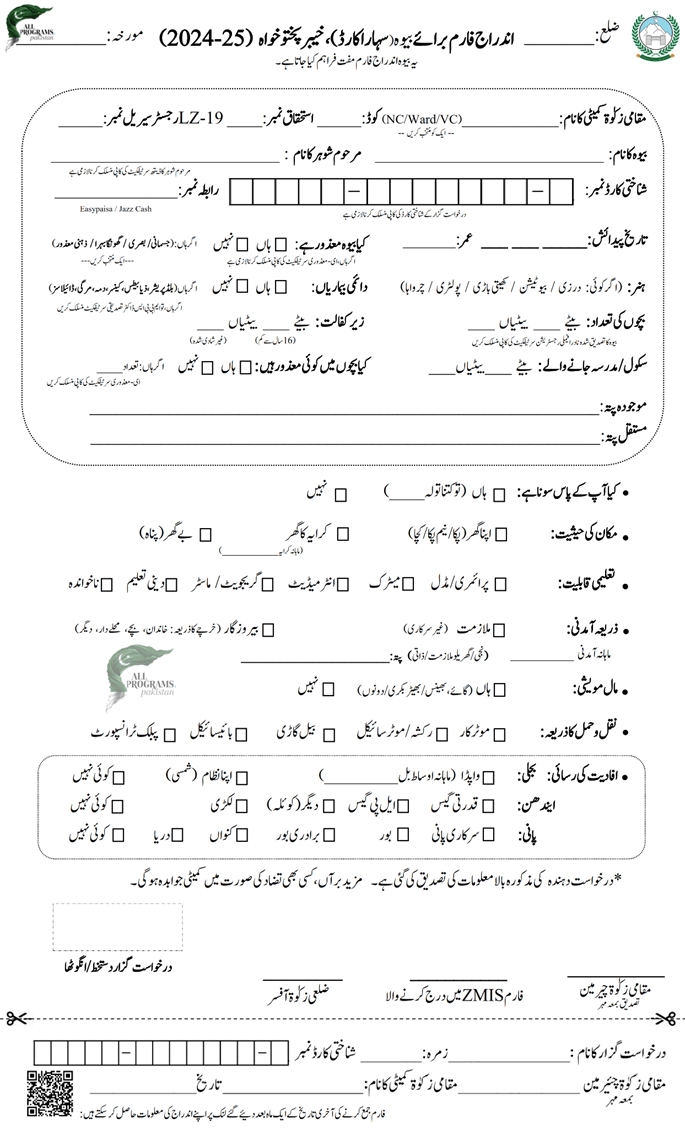 ALL PROGRAMS pakistan
ضلع:__________ اندراج فارم برائے بیوہ (سہارا کارڈ)، خیبر پختونخواہ (2024-25) مورخہ:__________
یہ بیوہ اندراج فارم مفت فراہم کیا جاتا ہے۔
مقامی زکوٰۃ کمیٹی کا نام:__________(NC/Ward/VC) کوڈ:______ استحقاق نمبر:_____ LZ-19 رجسٹر سیریل نمبر:______
-- ایک کو منتخب کریں --
بیوہ کا نام: __________ مرحوم شوہر کا نام : __________
مرحوم شوہر کا ڈیتھ سرٹیفکیٹ کی کاپی منسلک کرنا لازمی ہے
شناختی کارڈ نمبر: – – رابطہ نمبر:______
درخواست گزار کے شناختی کارڈ کی کاپی منسلک کرنا لازمی ہے Easypaisa / Jazz Cash
تاریخ پیدائش: ___ ___ ____ عمر:______ کیا بیوہ معذور ہے: □ ہاں □ نہیں اگر ہاں: (جسمانی/ بصری / گونگا بہرا / ذہنی معذور)
اگر ہاں، ای-معذوری سرٹیفکیٹ کی کاپی منسلک کرنا لازمی ہے ---ایک منتخب کریں---
ہنر: (اگر کوئی: درزی / بیوٹیشن / کھیتی باڑی / پولٹری / چرواہا) دائمی بیماریاں: □ ہاں □ نہیں اگر ہاں (بلڈ پریشر، ذیابطیس، کینسر، دمہ، مرگی، ڈائیلاسز)
اگر ہاں، تو ایم بی بی ایس ڈاکٹر تصدیقی سرٹیفکیٹ منسلک کریں
بچوں کی تعداد: بیٹے ____ بیٹیاں ____ زیر کفالت: بیٹے ____ بیٹیاں ____
بیوہ کا تصدیق شدہ نادرا فیملی رجسٹریشن سرٹیفکیٹ کی کاپی منسلک کریں (16 سال سے کم) (غیر شادی شدہ)
سکول/مدرسہ جانے والے: بیٹے ____ بیٹیاں____ کیا بچوں میں کوئی معذور ہیں: □ ہاں □ نہیں اگر ہاں: تعداد____
ای-معذوری سرٹیفکیٹ کی کاپی منسلک کریں
موجودہ پتہ:__________
مستقل پتہ:__________
• کیا آپ کے پاس سونا ہے: □ ہاں (تو کتنا تولہ_____) □ نہیں
• مکان کی حیثیت: □ اپنا گھر (پکا/نیم پکا/کچا) □ کرایہ کا گھر □ بے گھر (پناہ)
(ماہانہ کرایہ__________)
• تعلیمی قابلیت: □ پرائمری/مڈل □ میٹرک □ انٹرمیڈیٹ □ گریجویٹ/ ماسٹر □ دینی تعلیم □ ناخواندہ
• ذریعہ آمدنی: □ ملازمت (غیر سرکاری) □ بیروزگار (خرچے کا ذریعہ: خاندان، بچے، محلے دار، دیگر)
ماہانہ آمدنی __________ (نجی/گھریلو ملازمت/ذاتی) پتہ:__________
ALL PROGRAMS pakistan
• مال مویشی: □ ہاں (گائے، بھینس/بھیڑ بکری/دونوں) □ نہیں
• نقل و حمل کا ذریعہ: □ موٹر کار □ رکشہ/موٹر سائیکل □ بیل گاڑی □ بائیسائیکل □ پبلک ٹرانسپورٹ
• افادیت کی رسائی: بجلی: □ واپڈا (ماہانہ اوساط بل__________) □ اپنا نظام (شمسی) □ کوئی نہیں
ایندھن: □ قدرتی گیس □ ایل پی گیس □ دیگر (کوئلہ) □ لکڑی □ کوئی نہیں
پانی: □ سرکاری پانی □ بور □ برادری بور □ کنواں □ دریا □ کوئی نہیں
*درخواست دہندہ کی مذکورہ بالا معلومات کی تصدیق کی گئی ہے۔ مزید برآں، کسی بھی تضاد کی صورت میں کمیٹی جوابدہ ہوگی۔
درخواست گزار دستخط/انگوٹھا
مقامی زکوٰۃ چیرمین فارم ZMIS میں درج کرنے والا ضلعی زکوٰۃ آفسر
تصدیق بمعہ مہر
درخواست گزار کا نام :__________ زمرہ:________ شناختی کارڈ نمبر – –
مقامی زکوٰۃ چیئرمین __________ مقامی زکوٰۃ کمیٹی کا نام:__________ تاریخ__________
بمعہ مہر
فارم جمع کرنے کی آخری تاریخ کے ایک ماہ بعد دیئے گئے لنک پر اپنے اندراج کی معلومات حاصل کر سکتے ہیں: